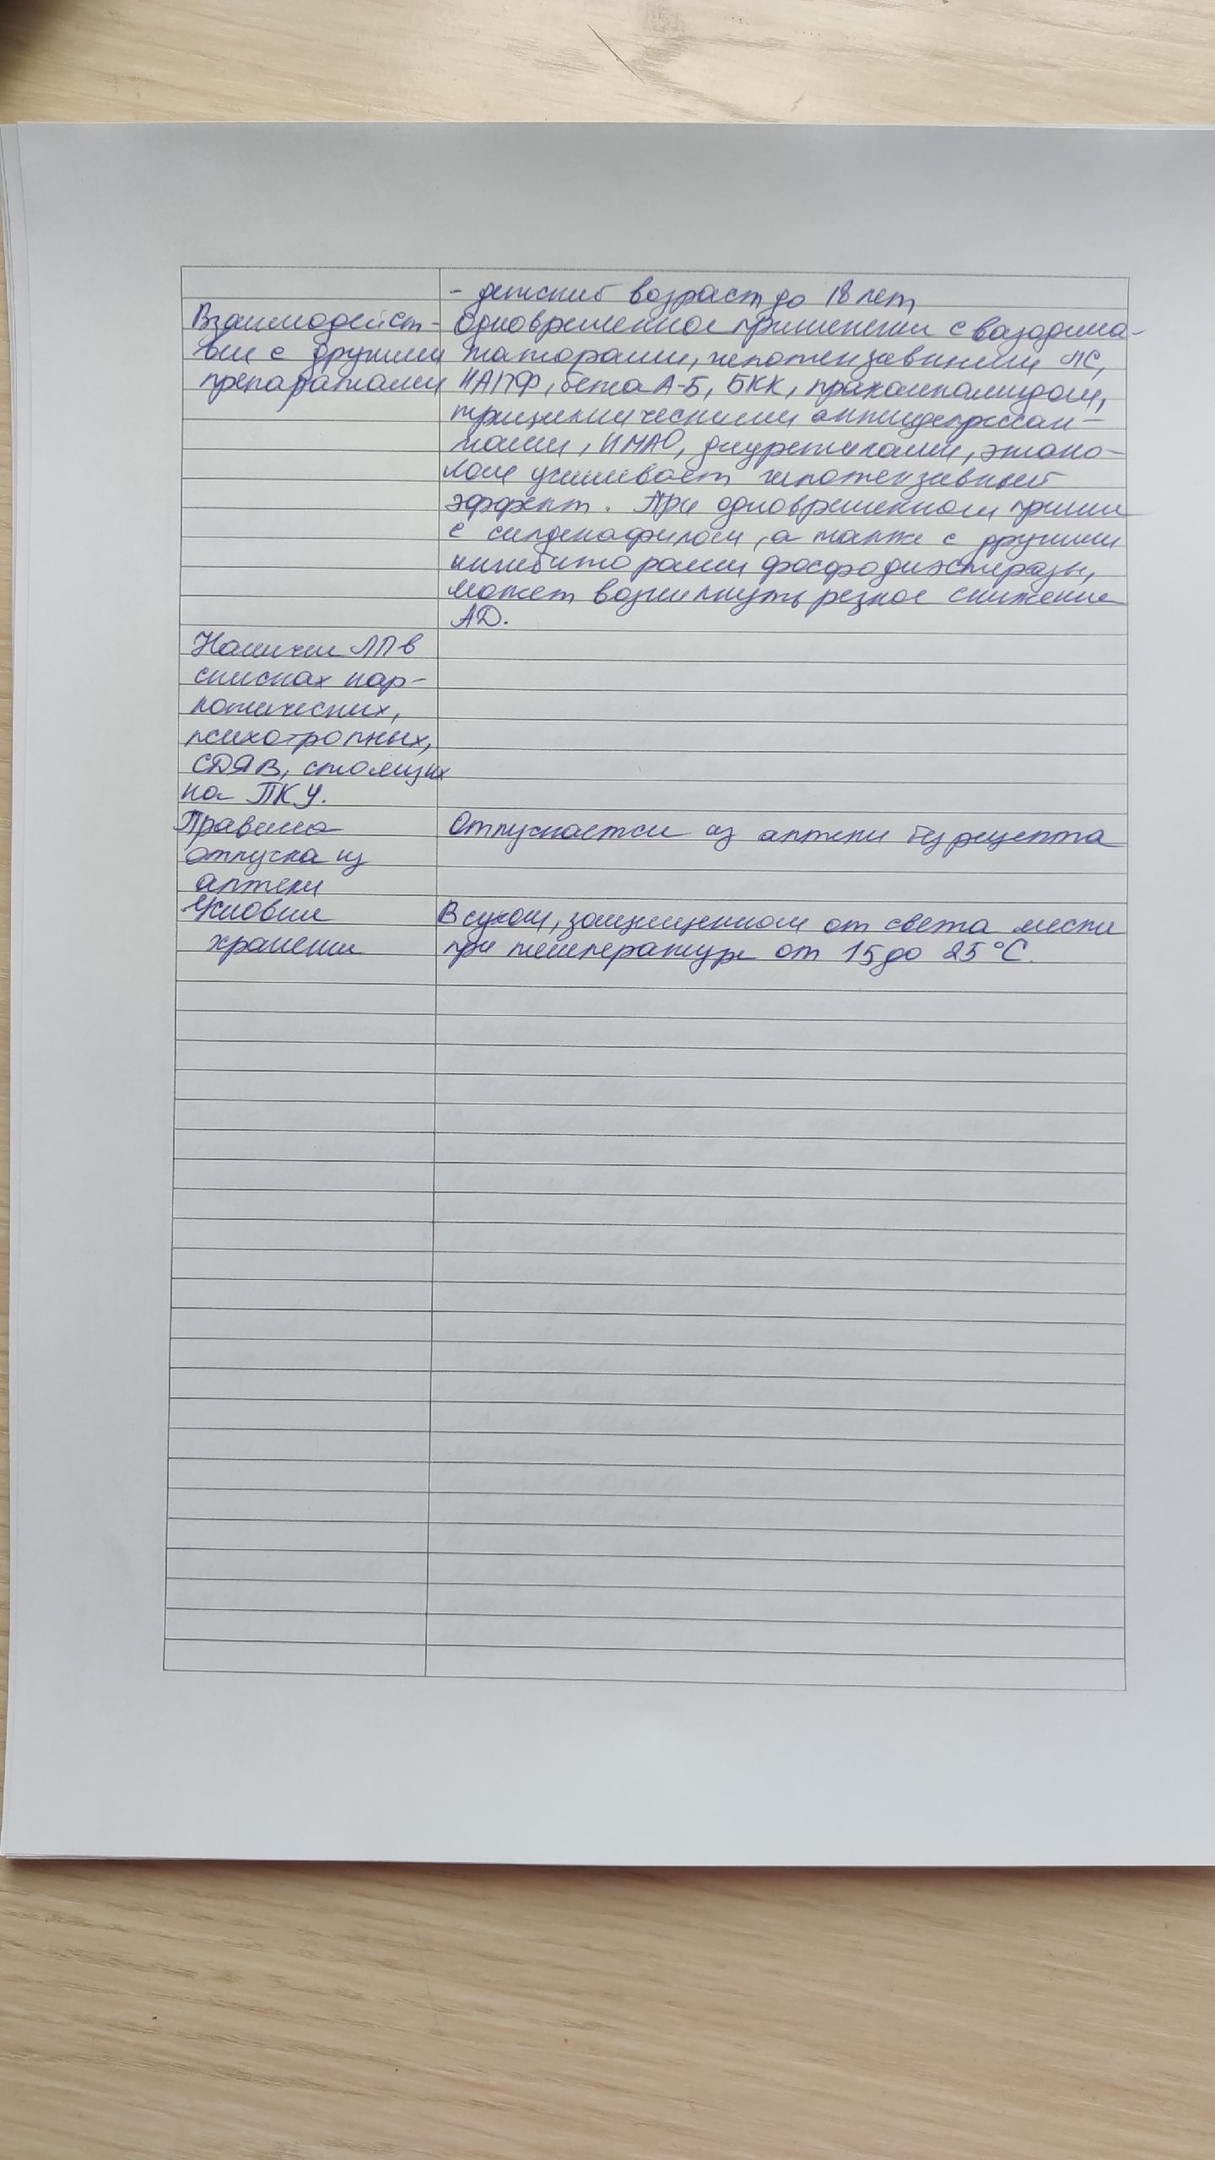 - детский возраст до 18 лет
Взаимодейст-
вие с другими
препаратами
Одновременное применении с вазодила-
таторами, гипотензивными ЛС,
ИАПФ, бета А-Б, БКК, прокаинамидом,
трициклическими антидепрессан-
тами, ИМАО, диуретиками, этано-
лом усиливает гипотензивный
эффект. При одновременном приеме
с силденафилом, а также с другими
ингибиторами фосфодиэстеразы,
может возникнуть резкое снижение
АД.
Наличие ЛП в
списках нар-
котических,
психотропных,
СДЯВ, стоящих
на ПКУ.
Правила
отпуска из
аптеки
Отпускается из аптеки без рецепта
Условия
хранения
В сухом, защищенном от света месте
при температуре от 15 до 25°C.